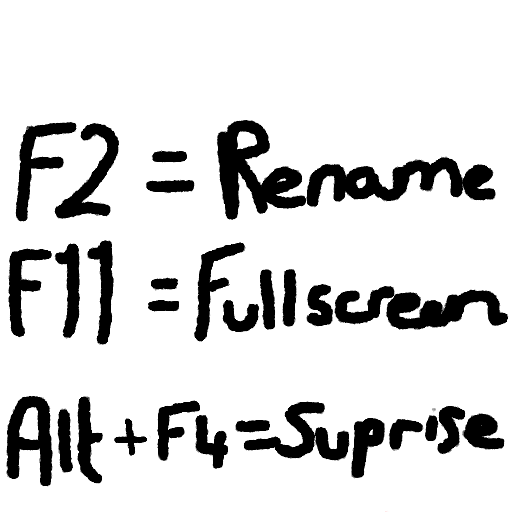 F2 = Rename
F11 = Fullscreen
Alt + F4 = Suprise